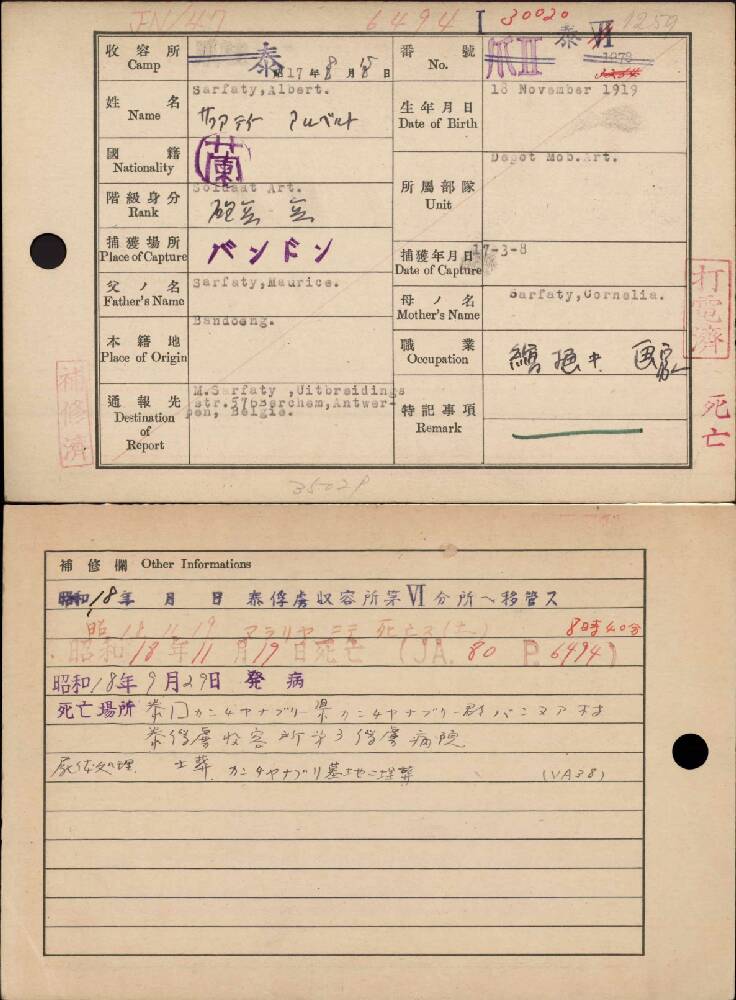 6494 I 30020 泰 VI 1259
收容所
Camp
泰
昭17年8月15日
番號
No.
爪II
姓名
Name
Sarfaty,Albert.
サアフテイ アルベルト
生年月日
Date of Birth
18 November 1919
國籍
Nationality
蘭
所屬部隊
Unit
Depot Mob.Art.
階級身分
Rank
Soldaat Art.
砲兵 兵
捕獲場所
Place of Capture
バンドン
捕獲年月日
Date of Capture
17-3-8
父ノ名
Father's Name
Sarfaty,Maurice.
母ノ名
Mother's Name
Sarfaty,Cornelia.
本籍地
Place of Origin
Bandoeng.
職業
Occupation
画家
通報先
Destination
of
Report
M.Sarfaty ,Uitbreidings
str.576Berchem,Antwer-
pen, Belgie.
特記事項
Remark
打電濟
死亡
補修濟
3502P
補修欄 Other Informations
昭和18年 月 日 泰俘虜収容所第VI分所ヘ移管ス
昭18 11 19 マラリヤニテ死亡ス 8時40分
昭和18年11月19日死亡 (JA. 80 P. 6494)
昭和18年9月29日 発病
死亡場所 泰国カンチヤナブリー県カンチヤナブリー郡バンヌア村
泰俘虜收容所第3俘虜病院
屍体処理 土葬 カンチヤナブリ墓地ニ埋葬 (VA38)